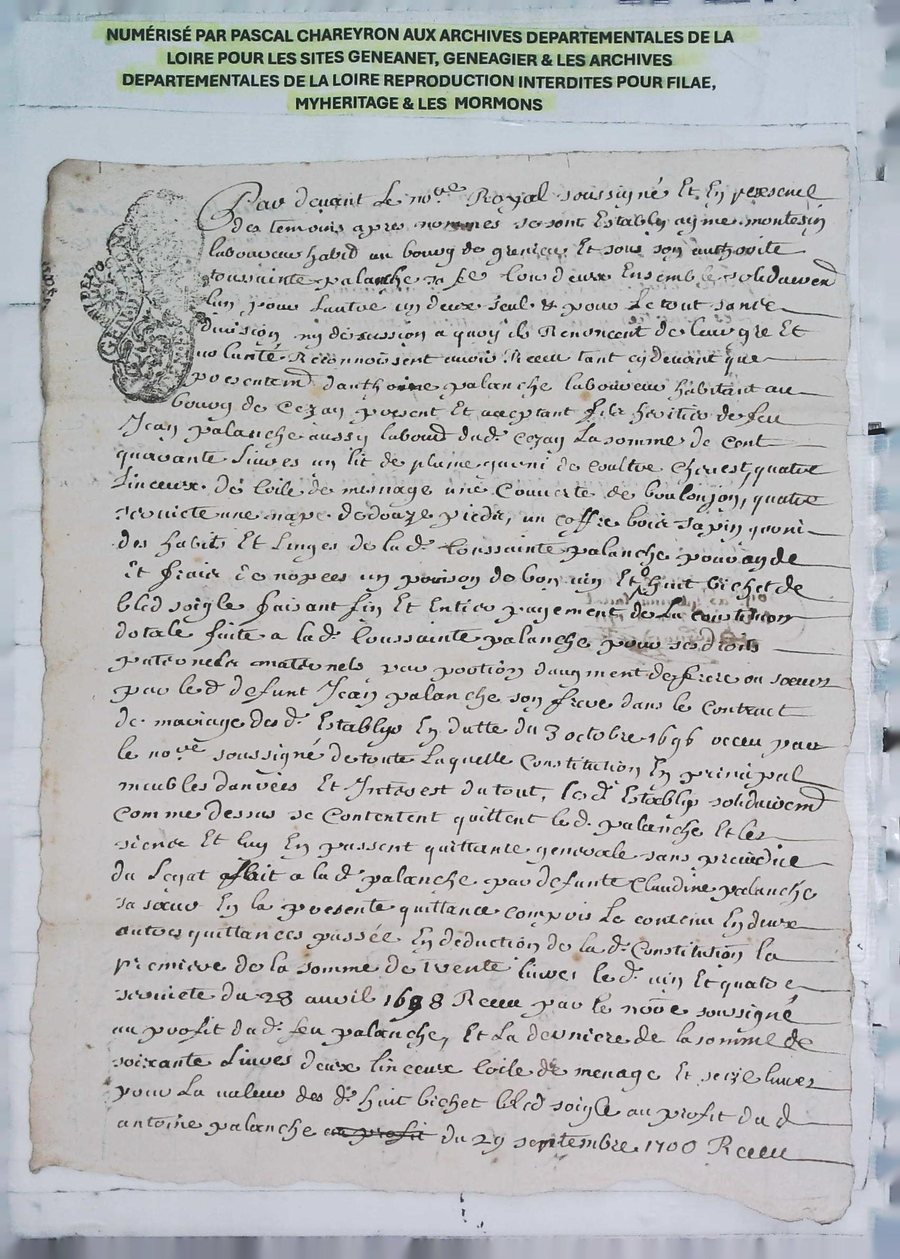 NUMÉRISÉ PAR PASCAL CHAREYRON AUX ARCHIVES DEPARTEMENTALES DE LA
LOIRE POUR LES SITES GENEANET, GENEAGIER & LES ARCHIVES
DEPARTEMENTALES DE LA LOIRE REPRODUCTION INTERDITES POUR FILAE,
MYHERITAGE & LES MORMONS
Par devant Le no.re Royal soussigné Et En presence
des temoins apres nommés se sont Establis ayme montesin
laboureur habit au bourg de Et sous son authorité
toussainte palanche sa fe tous deux Ensemble solidairem
lun pour lautre un deux seul & pour Le tout sans
division ny discussion a quoy ils Renoncent de leur gre Et
vollunté Reconnoissent avoir Receu tant cy devant que
presentemt danthoine palanche laboureur habitant au
bourg de Cezay present Et acceptant fils heritier de feu
Jean palanche aussy labour dud. Cezay La somme de cent
quarante Livres un lit de plume garni de coultre Chevest, quatre
Linceux de toile de mesnage une Couverte de boulonjon, quatre
serviete une nape de douze pieds, un coffre bois sapin garni
des habits Et Linges de la d. toussainte palanche pour ayde
Et frais de nopces un poinson de bon vin Et huit bichet de
bled soigle faisant fin Et Entier payement de La constitution
dotale faite a la d. toussainte palanche pour ses droits
paternels maternels par portion daugment de frere ou soeurs
par le d. defunt Jean palanche son frere dans le Contract
de mariage des d. Establys En datte du 3 octobre 1696 receu par
le no.re soussigné de toute Laquelle Constitution En principal
meubles danrées Et Interest du tout, les d. Establys solidairemt
comme dessus se Contentent quittent le d. palanche Et les
siens Et luy En passent quittance generale sans prejudice
du Legat fait a la d. palanche par defunte Claudine palanche
sa soeur En la presente quittance compris Le contenu En deux
autres quittances passée En deduction de la d. Constitution la
premiere de la somme de trente livres le d. vin Et quatre
serviete du 28 avril 1698 Receu par le no.re soussigné
au profit du d. feu palanche, Et La derniere de la somme de
soixante Livres deux linceux toile de menage Et seize livres
pour La valeur des d. huit bichet bled soigle au profit du d
antoine palanche au profit du 29 septembre 1700 Receu